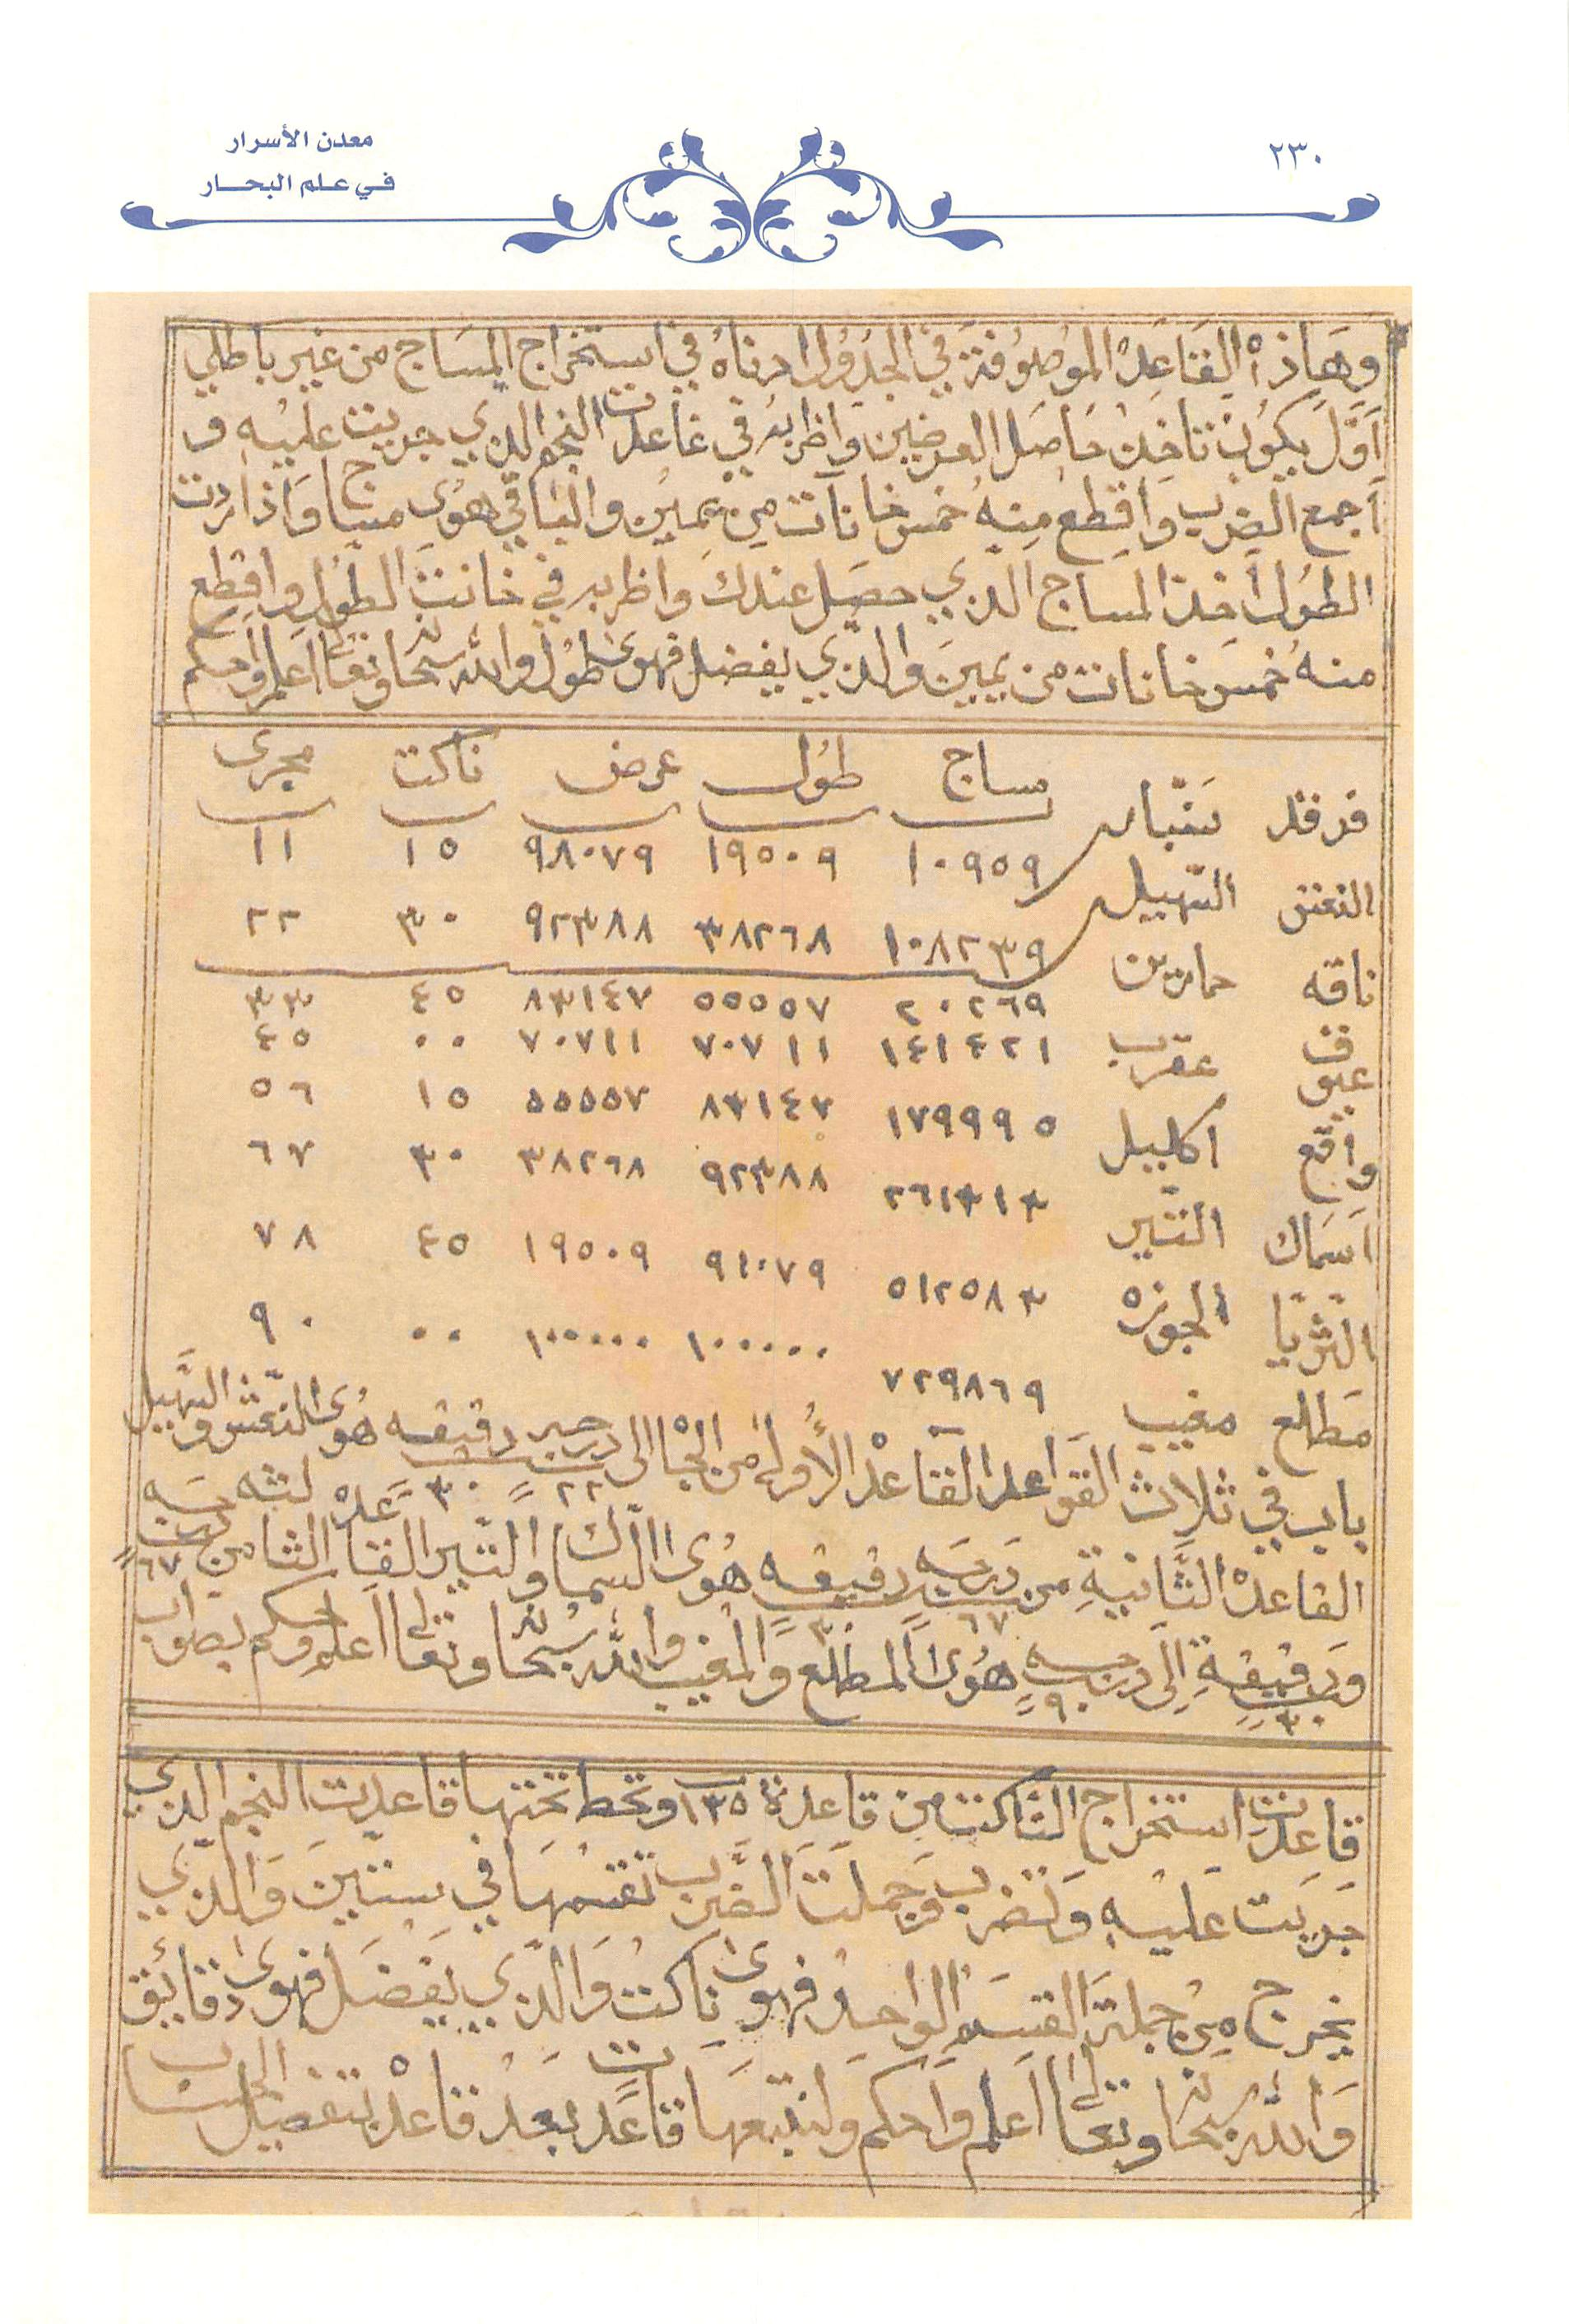 ٢٣٠
معدن الأسرار
في علم البحار
وَهَاذه القَاعِدْ الموُصُوفة في الجَدْوُل ادرناهُ في استخراج المسَاج من غير باطلي
اَوَّل يكوُن تاخذ حَاصَل العرضين واظربه في غاعدت النجم الدي جريت عليه و
اجمع الضرب واقطع مِنهُ خمس خانات من يمين والباقي هوى مساج وَاذا اردت
الطُول اخذ المساج الدي حصَل عندك واظربه في خانت الطُول واقطع
منهُ خمسَ خانات من يمينَ والدي يفضل فهوى طُول والله سبحانه وتعالى اعلم واحكم
مساج طوُل عرض ناكت مجرى
فرقد سَنبار ١٠٩٥٩ ١٩٥٠٩ ٩٨٠٧٩ ١٥ ١١
النعش السهيل ١٠٨٢٣٩ ٣٨٢٦٨ ٩٢٣٨٨ ٣٠ ٢٢
ناقه حمارين ٢٠٢٦٩ ٥٥٥٥٧ ٨٣١٤٧ ٤٥ ٣٣
عيوق عقرب ١٤١٤٢١ ٧٠٧١١ ٧٠٧١١ ٠٠ ٤٥
واقع اكليل ١٧٩٩٩٥ ٨٣١٤٧ ٥٥٥٥٧ ١٥ ٥٦
اسَماك التير ٢٦١٣١٣ ٩٢٣٨٨ ٣٨٢٦٨ ٣٠ ٦٧
الثريا الجوزه ٥١٢٥٨٣ ٩٨٠٧٩ ١٩٥٠٩ ٤٥ ٧٨
مَطلع مغيب ٧٢٩٨٦٩ ١٠٠٠٠٠ ١٠٠٠٠٠ ٠٠ ٩٠
باب في ثلاث القواعد القاعدْ الأوله من الجْاه الى درجه ٢٢ دقيقه ٣٠ هُوى النعش والسهيل
القاعدْ الثَّانيةِ من دَرجَه ٦٧ دقيقه ٣٠ هُوى السماك والتير القاعدْ الثالثه من درجَه ٦٧
ودقيقةِ ٣٠ اِلى درجه ٩٠ هُوى المطلع والمغيب والله سُبحانه وتعالى اعلم واحكم بصواب
قاعدت استخراج الناكت من قاعدة ١٣٥ وتحط تحتها قاعديت النجم الدي
جَريَت عَليه وَتضرب وَجملتَ الضرب تقسمهَا في ستينَ وَالدي
يخرج مِن جملةَ القسم الواحد فهوى ناكت وَالدي يَفضَل فهوى دقايق
وَالله سبحانه وتعالى اعلم وَاحكم ولنتبعهَا قاعدت بعدْ قاعدْ بتفصيل الحساب